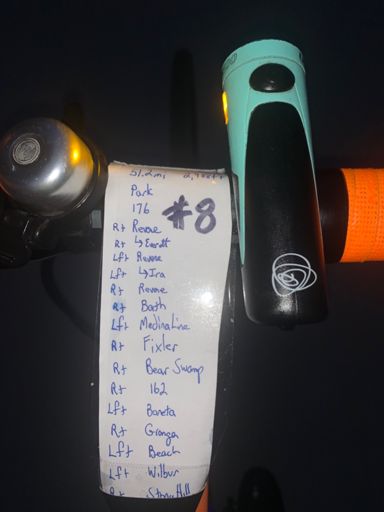 51.2mi
Park
176 #8
Rt Revere
Rt ↳ Everett
Lft Revere
Lft ↳ Ira
Rt Revere
Rt Bath
Lft Medina Line
Rt Fixler
Rt Bear Swamp
Rt 162
Lft Boneta
Rt Granger
Lft Beach
Lft Wilbur
Rt Stony Hill